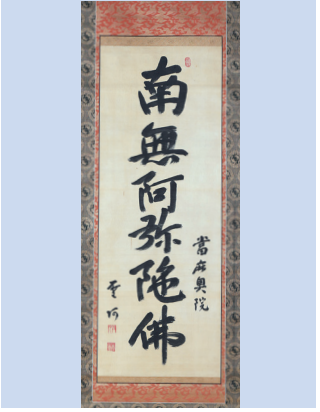 南無阿弥陀佛
當麻奥院